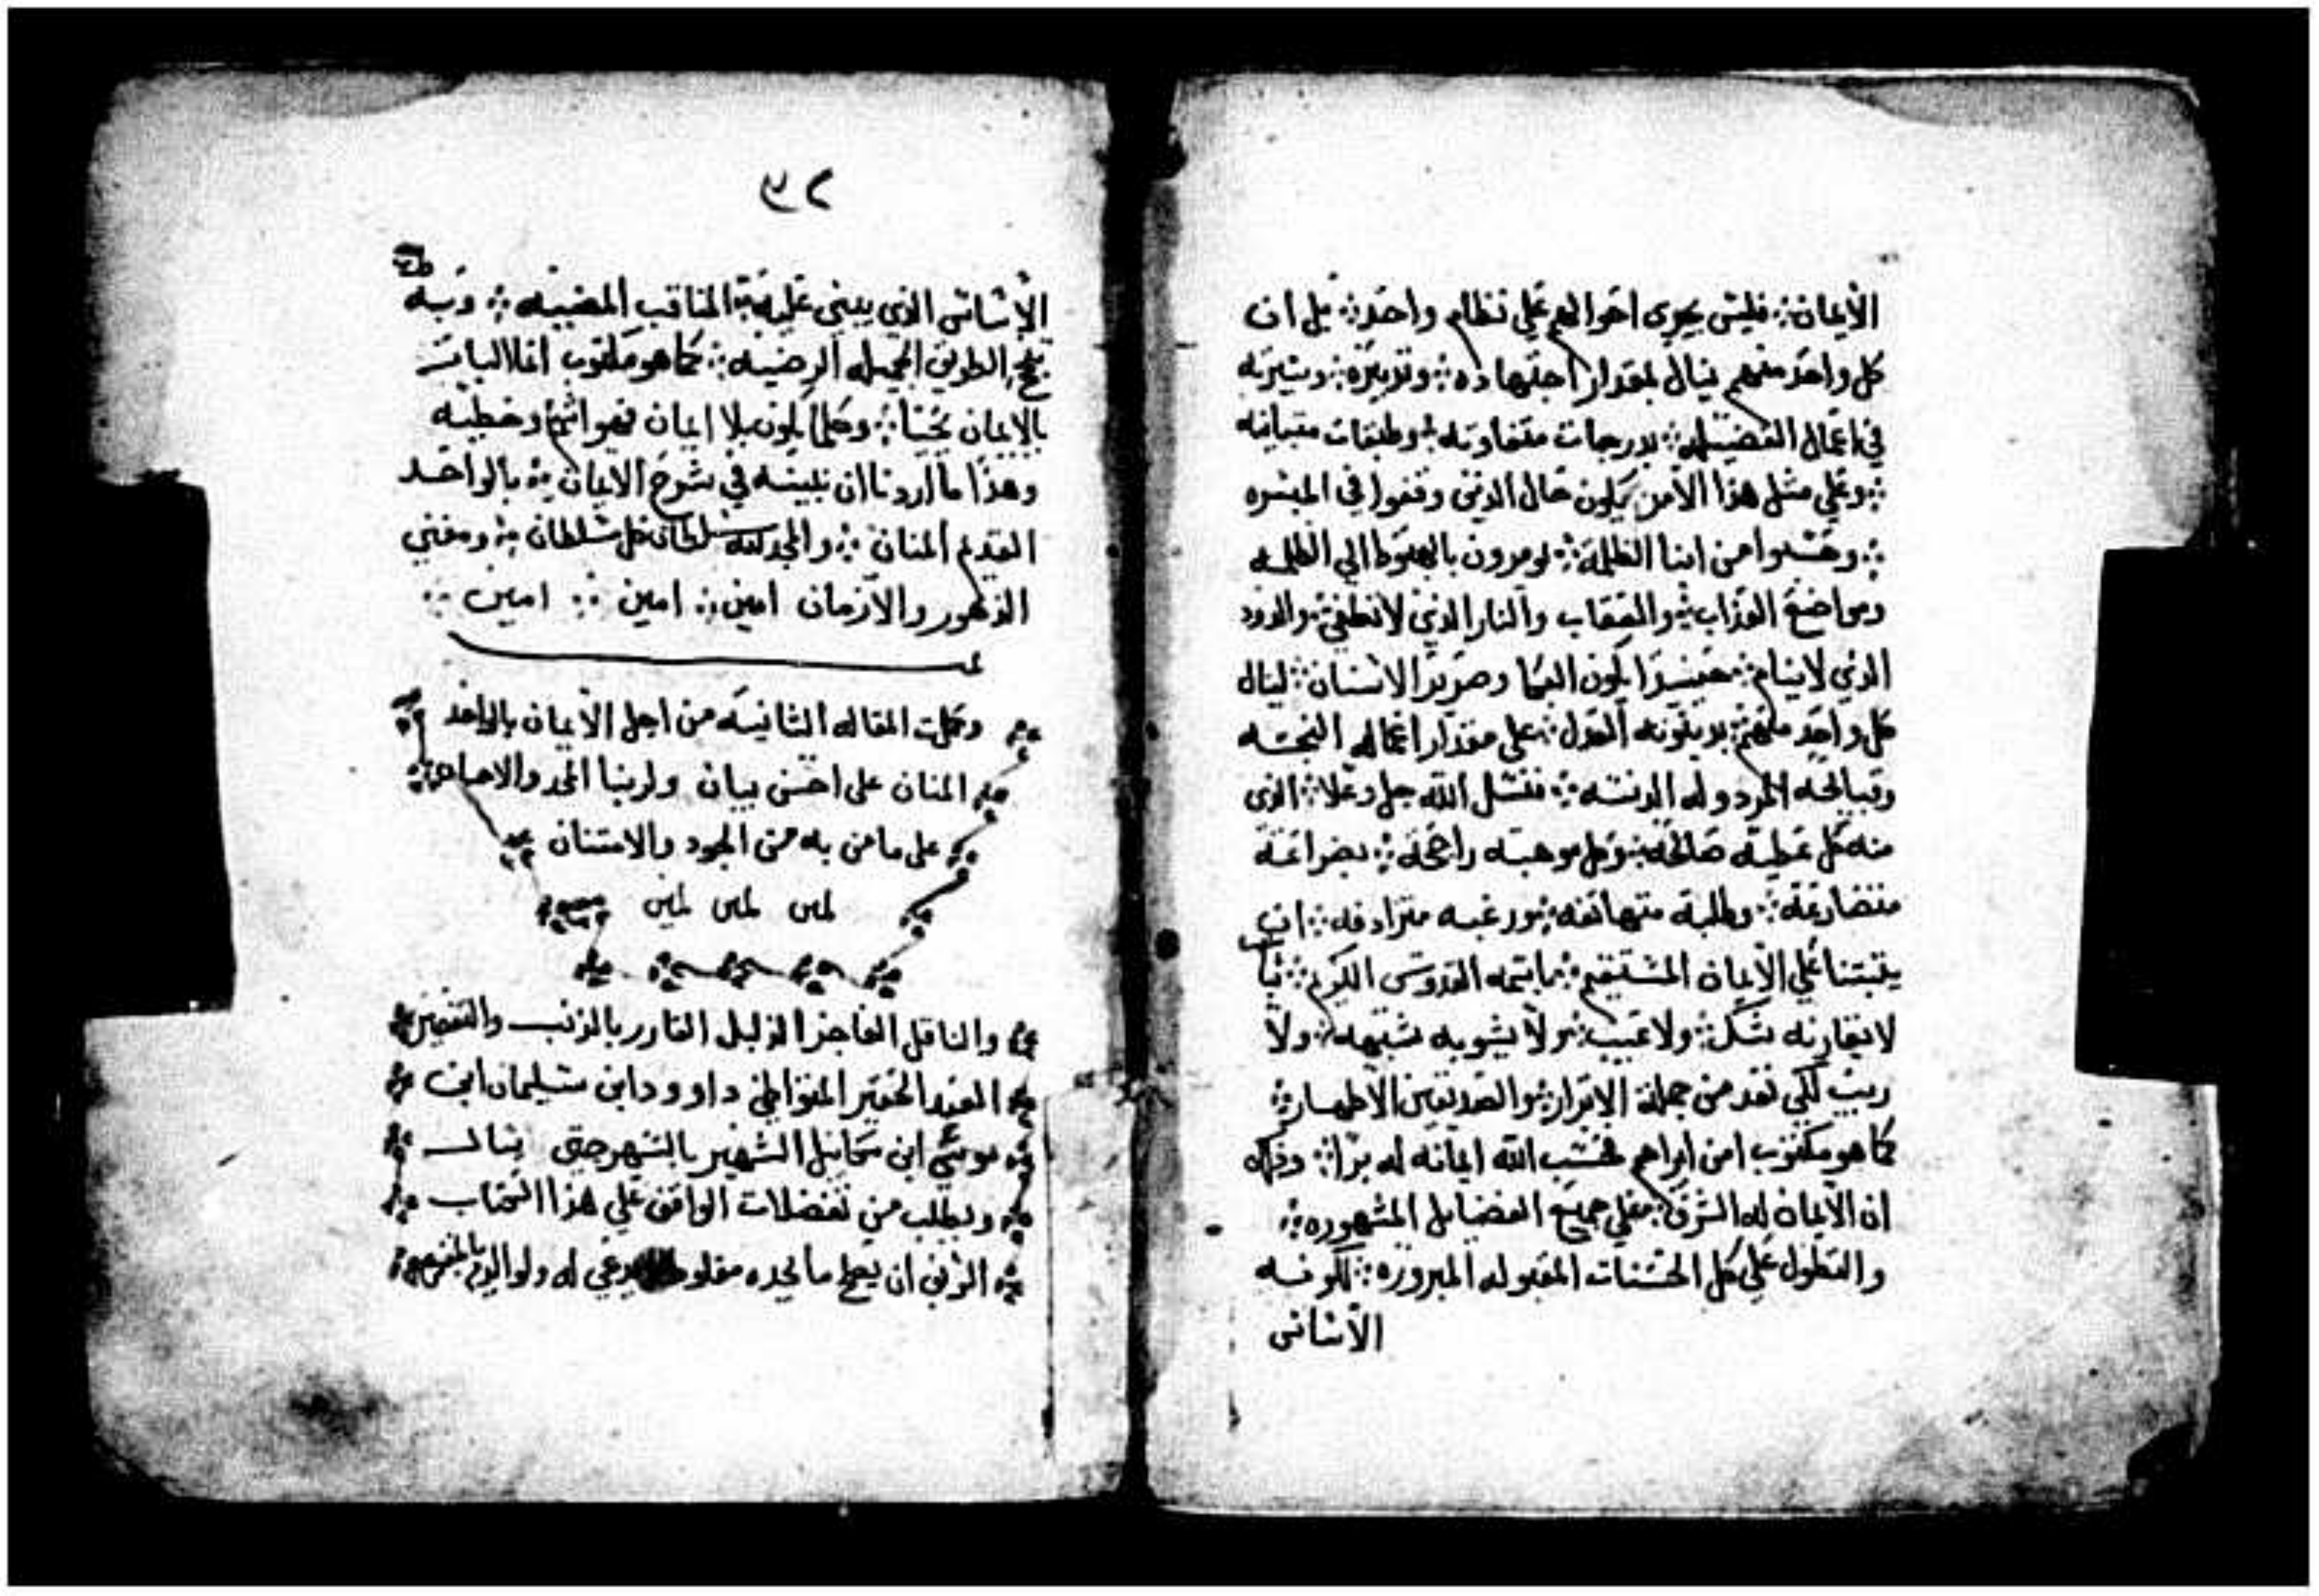 الأيمان فليس يجري احوالهم علي نظام واحد بل ان
كل واحد منهم ينال بمقدار اجتهاده وتدبيره وسيرته
في اعمال الفضيله بدرجات متفاوته وطبقات متباينه
وعلي مثل هذا الأمر يكون حال الذين وقفوا في الميسره
وحسبوا من ابنا الظلمة يومرون بالهبوط الي الظلمه
ومواضع العذاب والعقاب والنار الذي لا تطفي والدود
الذي لا ينام حينيذا يكون البكا وصرير الاسنان لينال
كل واحد منهم بدينونه العدل علي مقدار اعماله النجسه
وقبايحه المردوله الدنسه فنسل الله جل وعلا الذي
منه كل عطية صالحه وكل موهبته راجحة بضراعة
متضارعة وطلبة متهاتفه ورغبه مترادفه ان
يثبتنا علي الأيمان المستقيم باسمه القدوس الكريم ثباتا
لا تقارنه شك ولا عيب ولا يشوبه شبهه ولا
ريب لكي نعد من جملة الابرار والصديقين الاطهار
كما هو مكتوب امن ابراهم فحسب الله ايمانه له برا وذلك
ان الأيمان له الشرف علي جميع الفضايل المشهوره
والتطول علي كل الحسنات المقبوله المبروره لكونه
الأساس
٣٢
الأساس الذي يبني عليه المناقب المضييه وبه
الطريق الجميله الرضيه كما هو مكتوب انما البار
بالايمان يحيا وكلما يكون بلا ايمان فهو اثم وخطيه
وهذا ما اردنا ان نبينه في شرح الايمان بالواحد
القديم المنان والمجد لله سلطان كل سلطان ومفني
الدهور والأزمان امين امين امين
وكملت المقاله الثانيه من اجل الأيمان بالواحد
المنان علي احسن بيان ولربنا المجد والاحسان
علي ما من به من الجود والامتنان
امين امين امين
والناقل العاجز الذليل القادر بالذنب والتقصير
العبد الحقير المتواطي داوود ابن سليمان ابن
موسي ابن مخاييل الشهير بالشهرجتي يسال
ويطلب من تفضلات الواقف علي هذا الكتاب
الذين ان يصلح ما يجده مغلوط ويدعي له ولوالديه